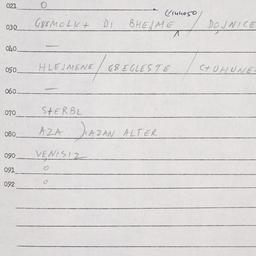 021 0
030 GREMOLKA DI BHEJME / DOJNICE
040 —
050 HLEJMENE / GREGLESTE /
060 —
070 STERBL
080 AZA JAZAN ALTER
090 VENISIZ
091 0
092 0